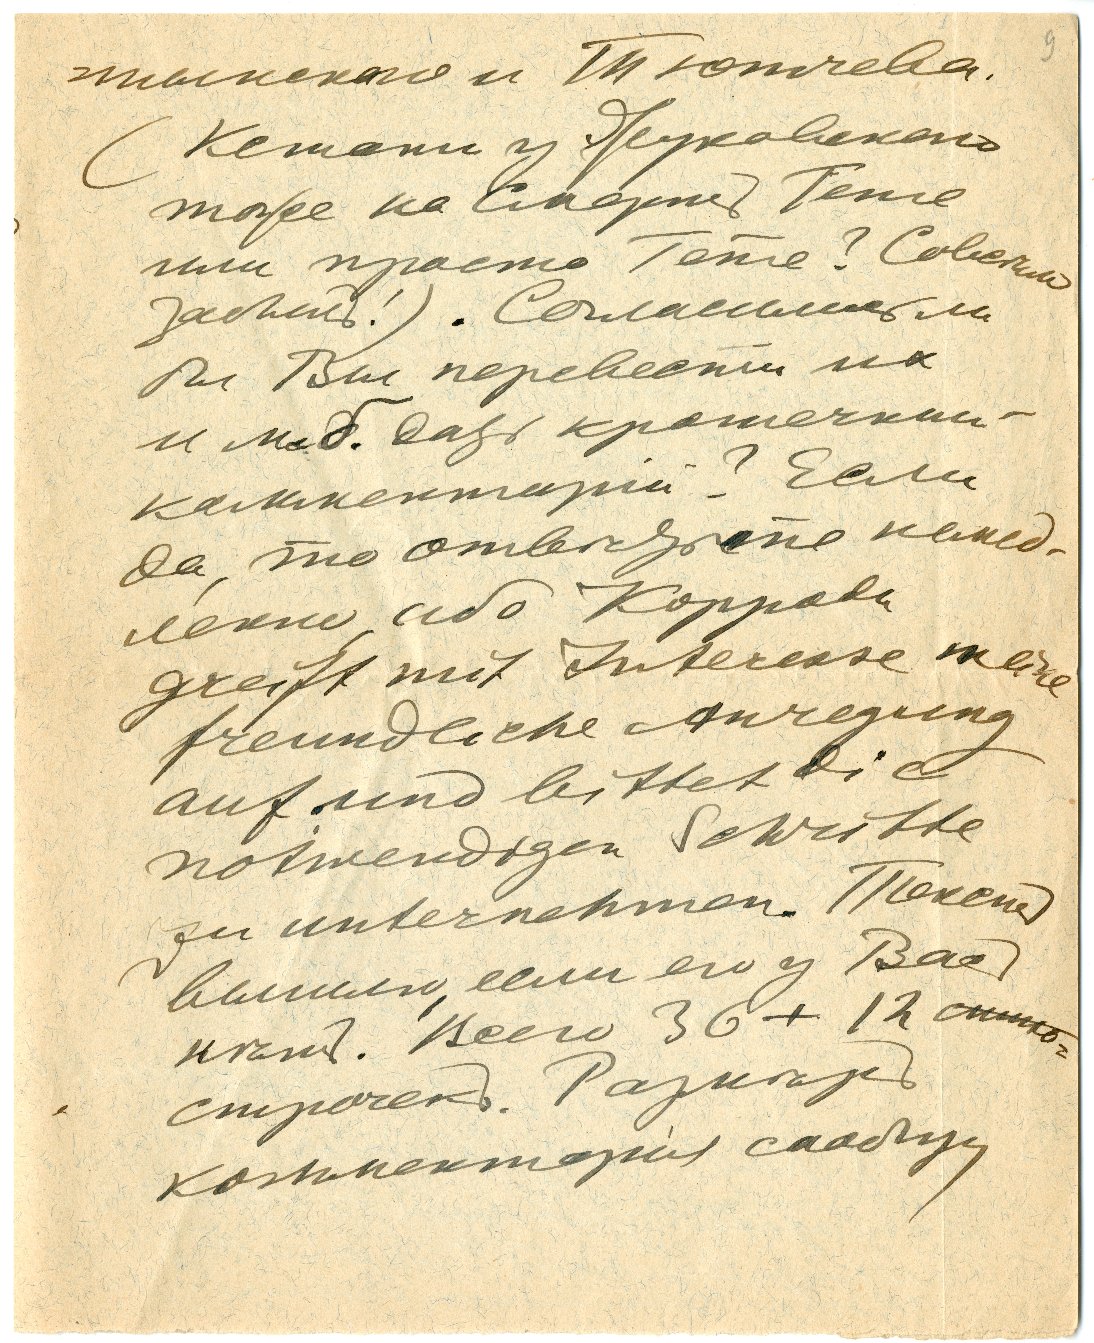 9
тынскаго и Тютчева.
(Кстати у Жуковскаго
тоже на Смерть Гете
или просто Гете? Совсѣмъ
забылъ!). Согласились ли
бы Вы перевести их
и м.б. дать крошечный
комментарій? Если
да, то отвѣчайте немед-
ленно, ибо Коррови
greift mit Interesse meine
freundliche Anregung
auf und bittet die
notwendigen Schritte
zu unternehmen. Текстъ
вышлю, если его у Васъ
нѣтъ. Всего 36 + 12
строчекъ. Размѣръ
комментарія сообщу